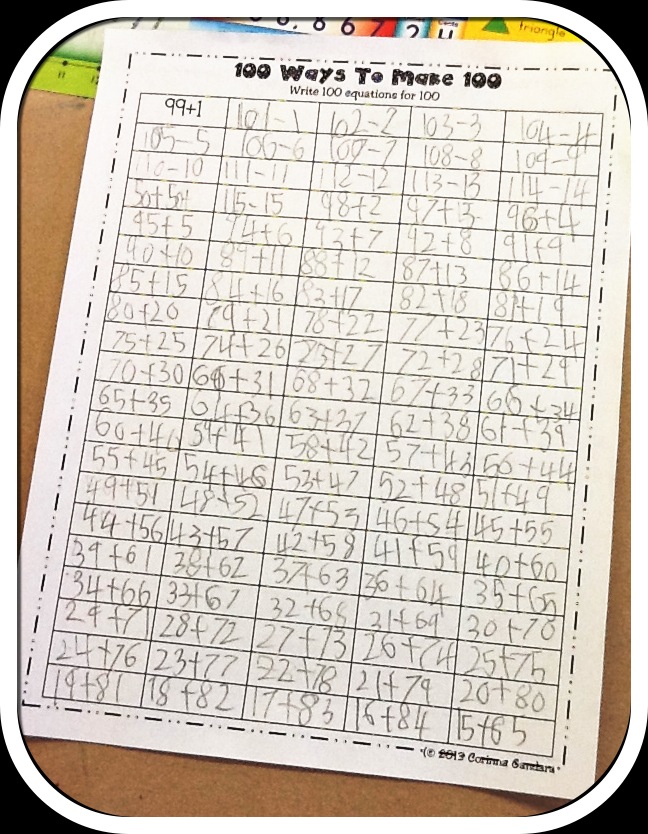 triangle
100 Ways To Make 100
Write 100 equations for 100
99+1 101-1 102-2 103-3 104-4
105-5 106-6 107-7 108-8 109-9
110-10 111-11 112-12 113-13 114-14
50+50 115-15 98+2 97+3 96+4
95+5 94+6 93+7 92+8 91+9
90+10 89+11 88+12 87+13 86+14
85+15 84+16 83+17 82+18 81+19
80+20 79+21 78+22 77+23 76+24
75+25 74+26 73+27 72+28 71+29
70+30 69+31 68+32 67+33 66+34
65+35 64+36 63+37 62+38 61+39
60+40 59+41 58+42 57+43 56+44
55+45 54+46 53+47 52+48 51+49
49+51 48+52 47+53 46+54 45+55
44+56 43+57 42+58 41+59 40+60
39+61 38+62 37+63 36+64 35+65
34+66 33+67 32+68 31+69 30+70
29+71 28+72 27+73 26+74 25+75
24+76 23+77 22+78 21+79 20+80
19+81 18+82 17+83 16+84 15+85
© 2013 Corinna Gandara